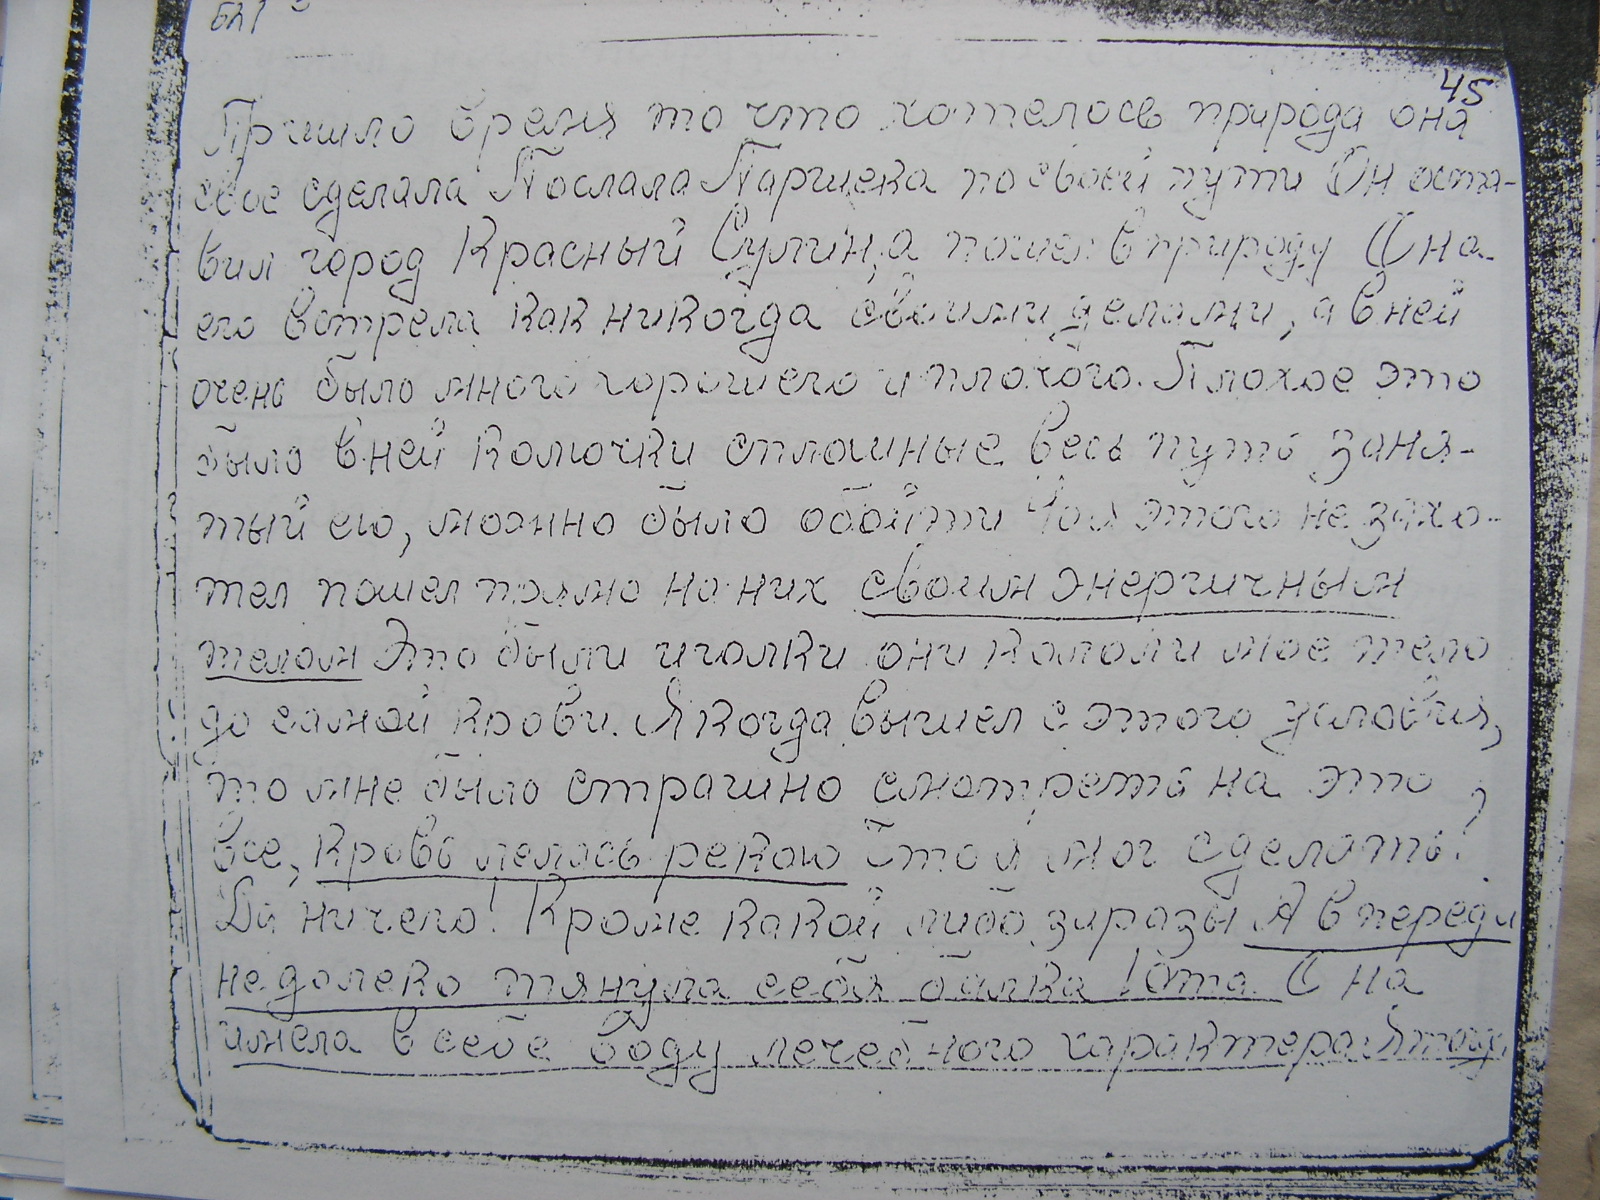 45
Пришло время то что хотелось природа она
свое сделала Послала Паршека по своей пути Он оста-
вил город Красный Сулин, а пошел в природу Она
его встрела как никогда своими делами, а в ней
очень было много хорошего и плохого. Плохое это
было в ней колючки сплошные весь путь заня-
тый ею, можно было обойти этого не захо-
тел пошел прямо на них своим энергичным
телом Это были иголки они кололи мое тело
до самой крови. Я когда вышел с этого условия,
то мне было страшно смотреть на это
все, кровь лелась рекою Что я мог сделать?
Да ничего! Кроме какой либо заразы А впереди
не далеко тянула себя балка Она
имела в себе воду лечебного характера